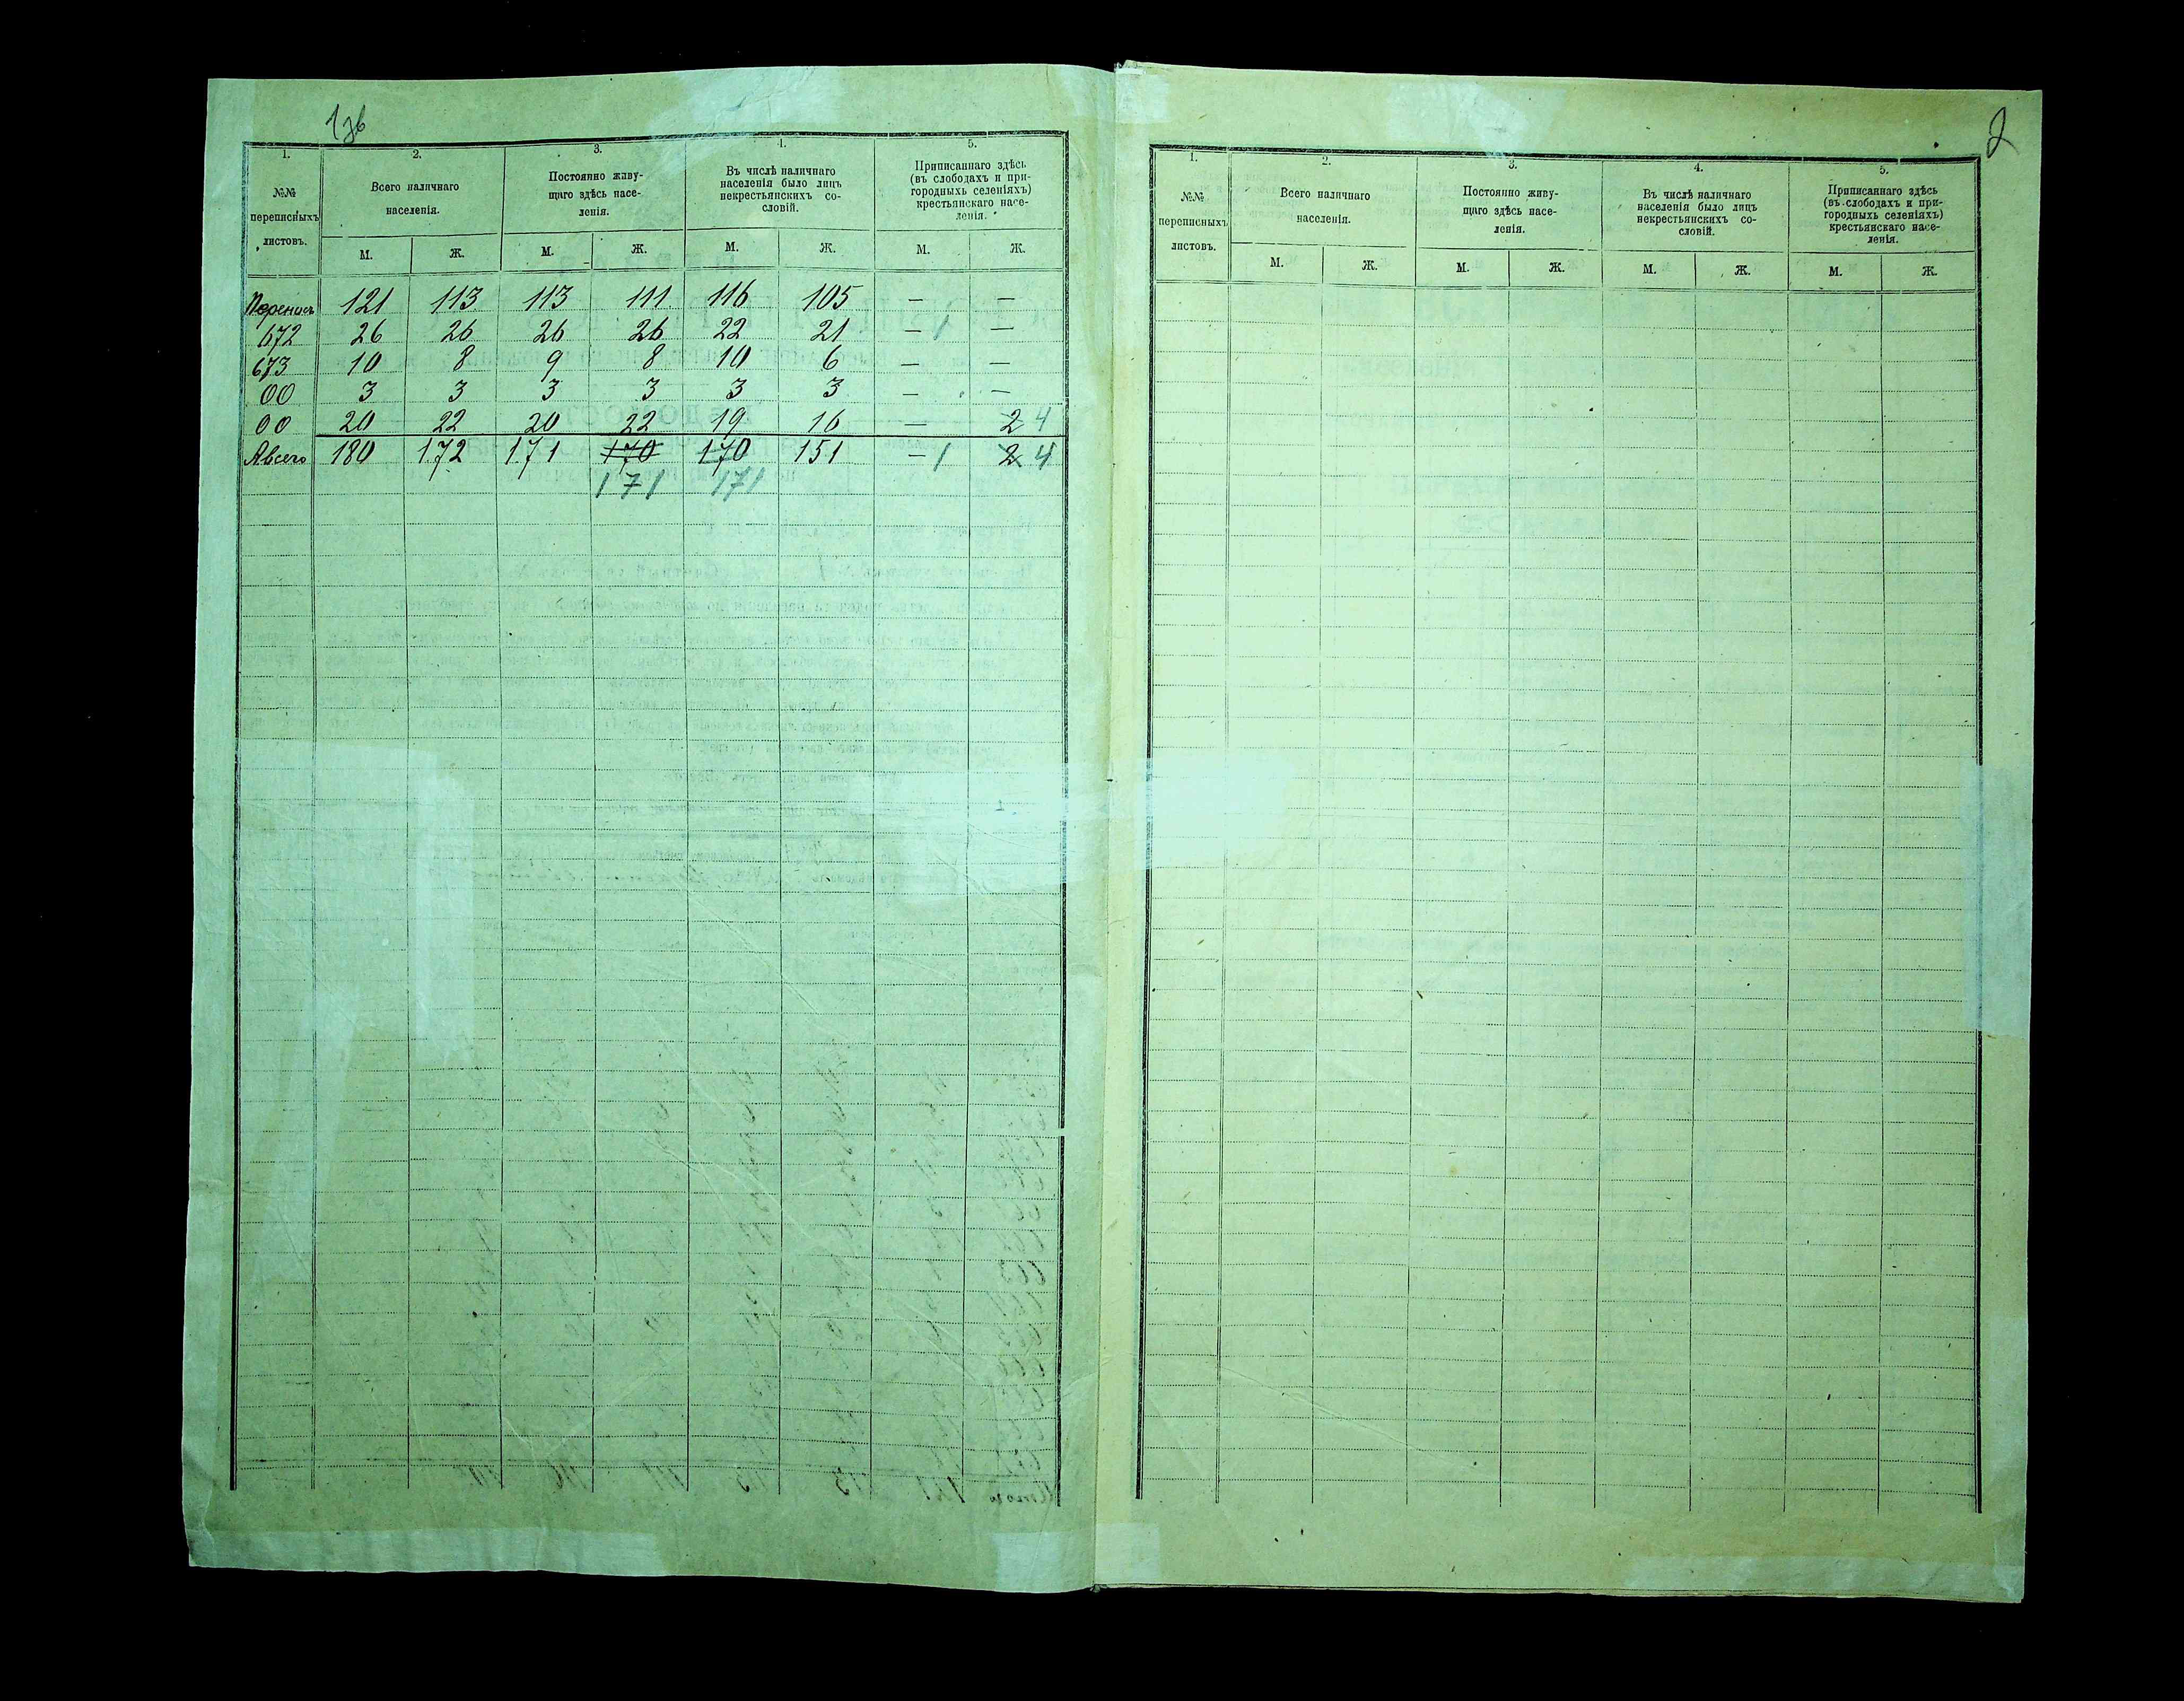 1 об
1. 2. 3. 4. 5.
№№ переписныхъ листовъ.
Всего наличнаго населенія.
Постоянно живу-
щаго здѣсь насе-
ленія.
Въ числѣ наличнаго
населенія было лицъ
некрестьянскихъ со-
словій.
Приписаннаго здѣсь
(въ слободахъ и при-
городныхъ селеніяхъ)
крестьянскаго насе-
ленія.
М. Ж. М. Ж. М. Ж. М. Ж.
121 113 113 111 116 105 — —
672 26 26 26 26 22 21 — 1 —
673 10 8 9 8 10 6 — —
00 3 3 3 3 3 3 — —
00 20 22 20 22 19 16 — 2 4
Авсего 180 172 171 170 170 151 — 1 2 4
171 171
2
1. 2. 3. 4. 5.
№№ переписныхъ листовъ.
Всего наличнаго населенія.
Постоянно живу-
щаго здѣсь насе-
ленія.
Въ числѣ наличнаго
населенія было лицъ
некрестьянскихъ со-
словій.
Приписаннаго здѣсь
(въ слободахъ и при-
городныхъ селеніяхъ)
крестьянскаго насе-
ленія.
М. Ж. М. Ж. М. Ж. М. Ж.